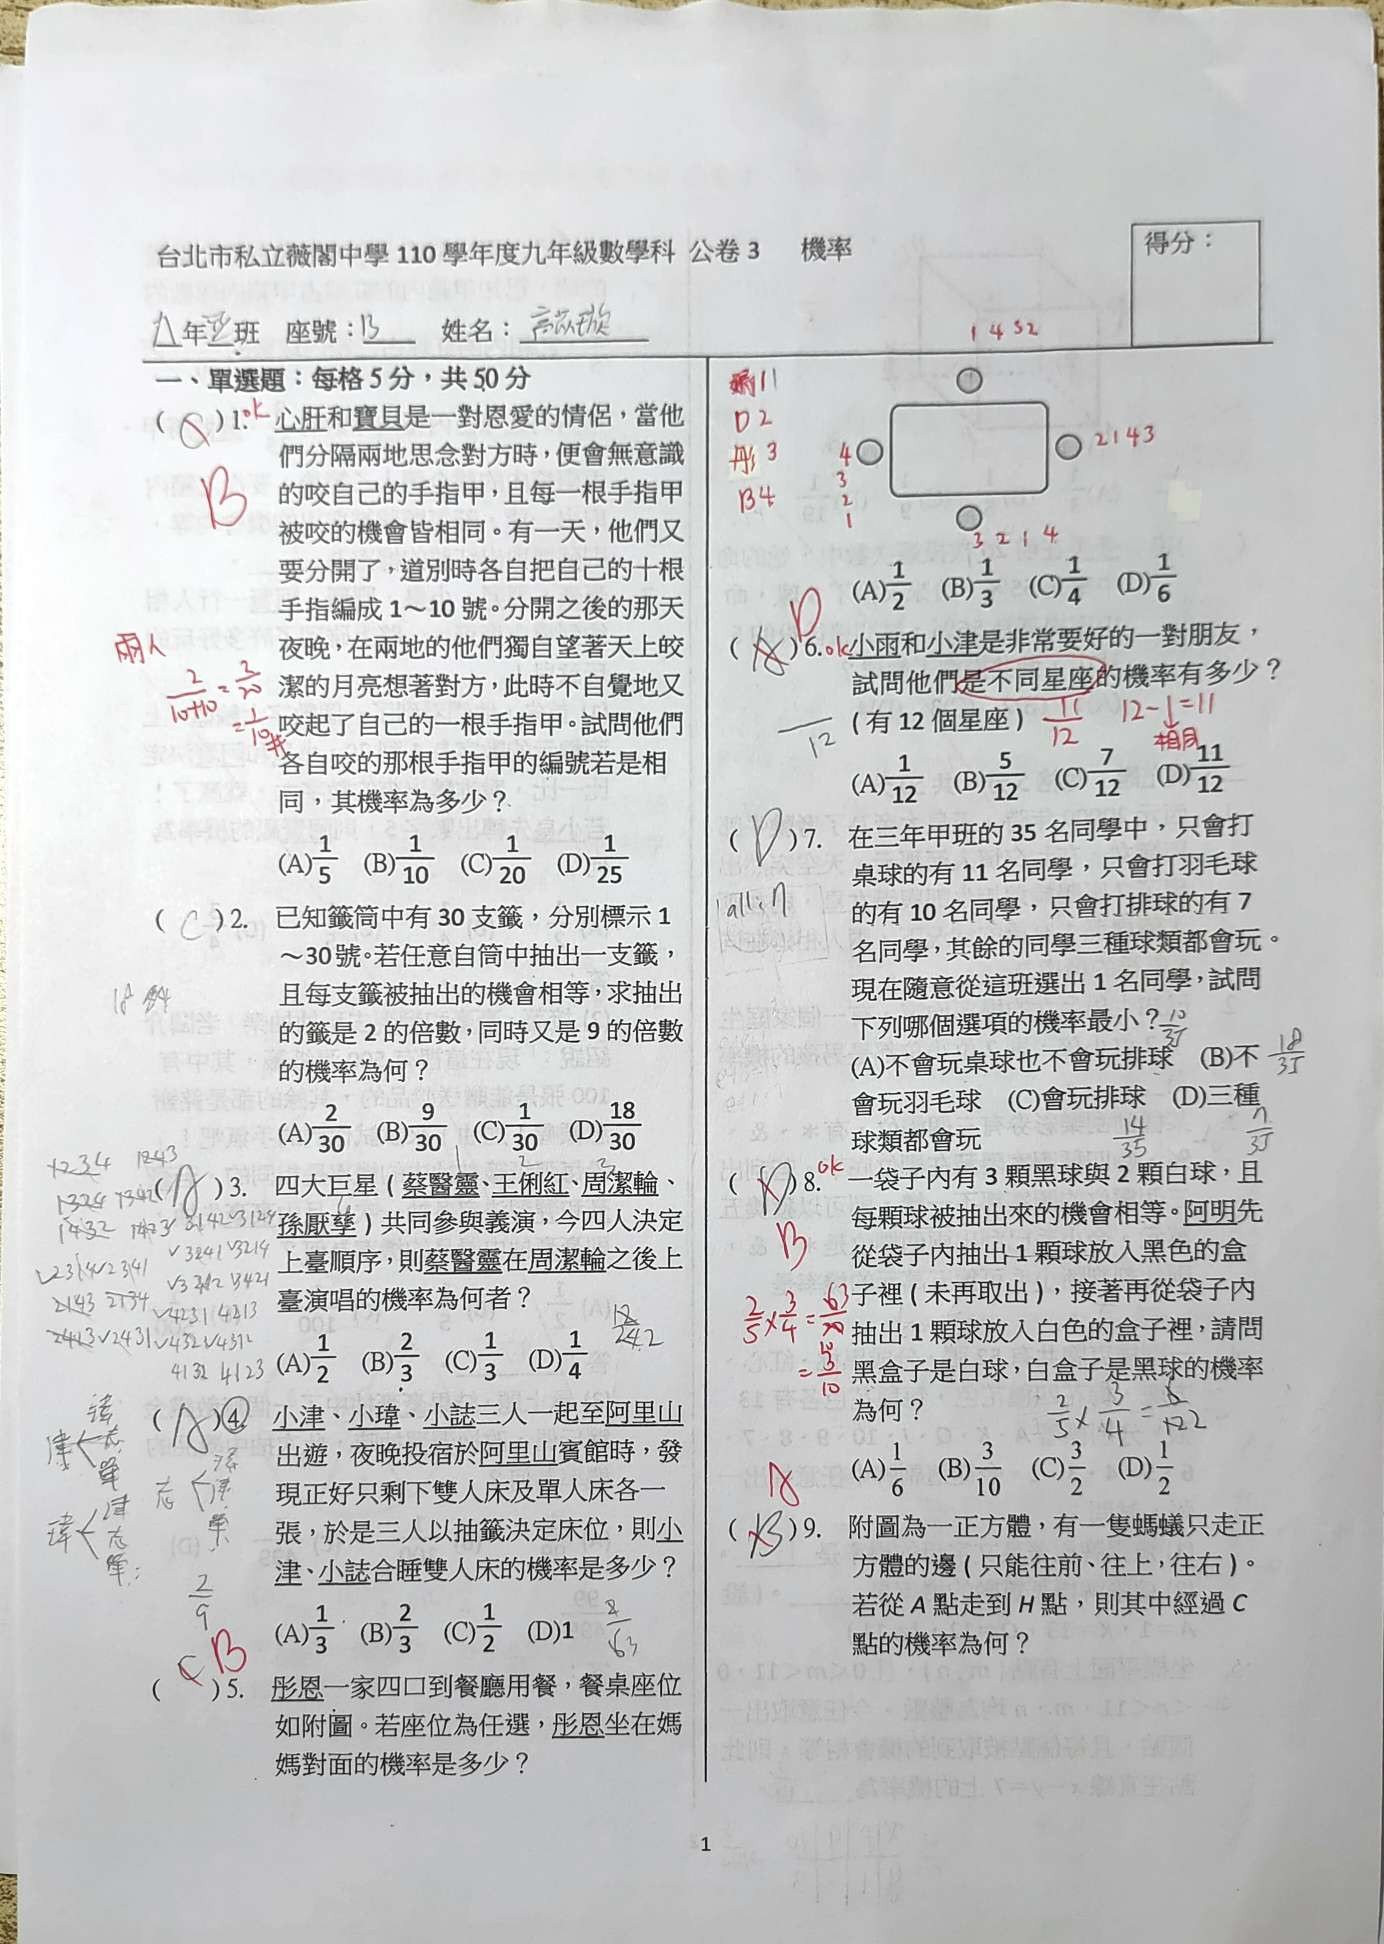 台北市私立薇閣中學 110 學年度九年級數學科 公卷 3 機率
得分：
九年 班 座號：13 姓名：
一、單選題：每格 5 分，共 50 分
( ) 1. ok 心肝和寶貝是一對恩愛的情侶，當他
們分隔兩地思念對方時，便會無意識
B
的咬自己的手指甲，且每一根手指甲
被咬的機會皆相同。有一天，他們又
要分開了，道別時各自把自己的十根
手指編成 1～10 號。分開之後的那天
兩人
夜晚，在兩地的他們獨自望著天上皎
2/(10+10) = 2/20
潔的月亮想著對方，此時不自覺地又
= 1/10 #
咬起了自己的一根手指甲。試問他們
各自咬的那根手指甲的編號若是相
同，其機率為多少？
(A) 1/5 (B) 1/10 (C) 1/20 (D) 1/25
( C ) 2. 已知籤筒中有 30 支籤，分別標示 1
～30 號。若任意自筒中抽出一支籤，
18
且每支籤被抽出的機會相等，求抽出
的籤是 2 的倍數，同時又是 9 的倍數
的機率為何？
(A) 2/30 (B) 9/30 (C) 1/30 (D) 18/30
1234 1243
1324 1342
1432 1423 3142 3124
3241 3214
2314 2341
3412 3421
2143 2134
4231 4213
2413 2431
4321 4312
4132 4123
( A ) 3. 四大巨星 ( 蔡醫靈、王俐紅、周潔輪、
1 2 3
孫厭孳 ) 共同參與義演，今四人決定
上臺順序，則蔡醫靈在周潔輪之後上
臺演唱的機率為何者？
12/24 2
(A) 1/2 (B) 2/3 (C) 1/3 (D) 1/4
( A ) 4. 小津、小瑋、小誌三人一起至阿里山
出遊，夜晚投宿於阿里山賓館時，發
現正好只剩下雙人床及單人床各一
張，於是三人以抽籤決定床位，則小
津、小誌合睡雙人床的機率是多少？
2/9
(A) 1/3 (B) 2/3 (C) 1/2 (D)1
C B
( ) 5. 彤恩一家四口到餐廳用餐，餐桌座位
如附圖。若座位為任選，彤恩坐在媽
媽對面的機率是多少？
1 4 3 2
媽 1
D 2
彤 3
B 4
4
3
2
1
2 1 4 3
3 2 1 4
(A) 1/2 (B) 1/3 (C) 1/4 (D) 1/6
D
( A ) 6. ok 小雨和小津是非常要好的一對朋友，
試問他們是不同星座的機率有多少？
/12
( 有 12 個星座 ) 11/12 12-1=11
相同
(A) 1/12 (B) 5/12 (C) 7/12 (D) 11/12
( D ) 7. 在三年甲班的 35 名同學中，只會打
桌球的有 11 名同學，只會打羽毛球
all: 7
的有 10 名同學，只會打排球的有 7
名同學，其餘的同學三種球類都會玩。
現在隨意從這班選出 1 名同學，試問
下列哪個選項的機率最小？
10/35
(A)不會玩桌球也不會玩排球 (B)不
18/35
會玩羽毛球 (C)會玩排球 (D)三種
球類都會玩
14/35 7/35
( ) 8. ok 一袋子內有 3 顆黑球與 2 顆白球，且
每顆球被抽出來的機會相等。阿明先
B
從袋子內抽出 1 顆球放入黑色的盒
子裡 ( 未再取出 )，接著再從袋子內
2/5 × 3/4 =
抽出 1 顆球放入白色的盒子裡，請問
= 3/10
黑盒子是白球，白盒子是黑球的機率
為何？
2/5 × 3/4 =
(A) 1/6 (B) 3/10 (C) 3/2 (D) 1/2
A
( B ) 9. 附圖為一正方體，有一隻螞蟻只走正
方體的邊 ( 只能往前、往上，往右 )。
若從 A 點走到 H 點，則其中經過 C
點的機率為何？
1